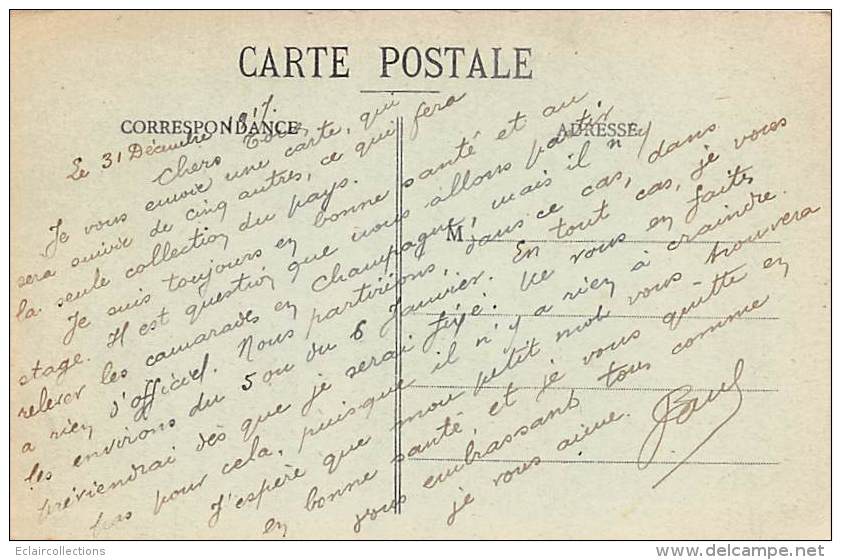 CARTE POSTALE
CORRESPONDANCE
ADRESSE
M
Le 31 Décembre 1917.
Chers Tous,
Je vous envoie une carte, qui
sera suivie de cinq autres, ce qui fera
la seule collection du pays.
Je suis toujours en bonne santé et au
stage. Il est question que nous allons partir
relever les camarades en Champagne, mais il n'y
a rien d'officiel. Nous partirions, dans ce cas, dans
les environs du 5 ou du 6 Janvier. En tout cas, je vous
préviendrai dès que je serai fixé. Ne vous en faites
pas pour cela, puisque il n'y a rien à craindre.
J'espère que mon petit mot vous trouvera
en bonne santé, et je vous quitte en
vous embrassant tous comme
je vous aime.
Paul
Eclaircollections
http://www.delcampe.net